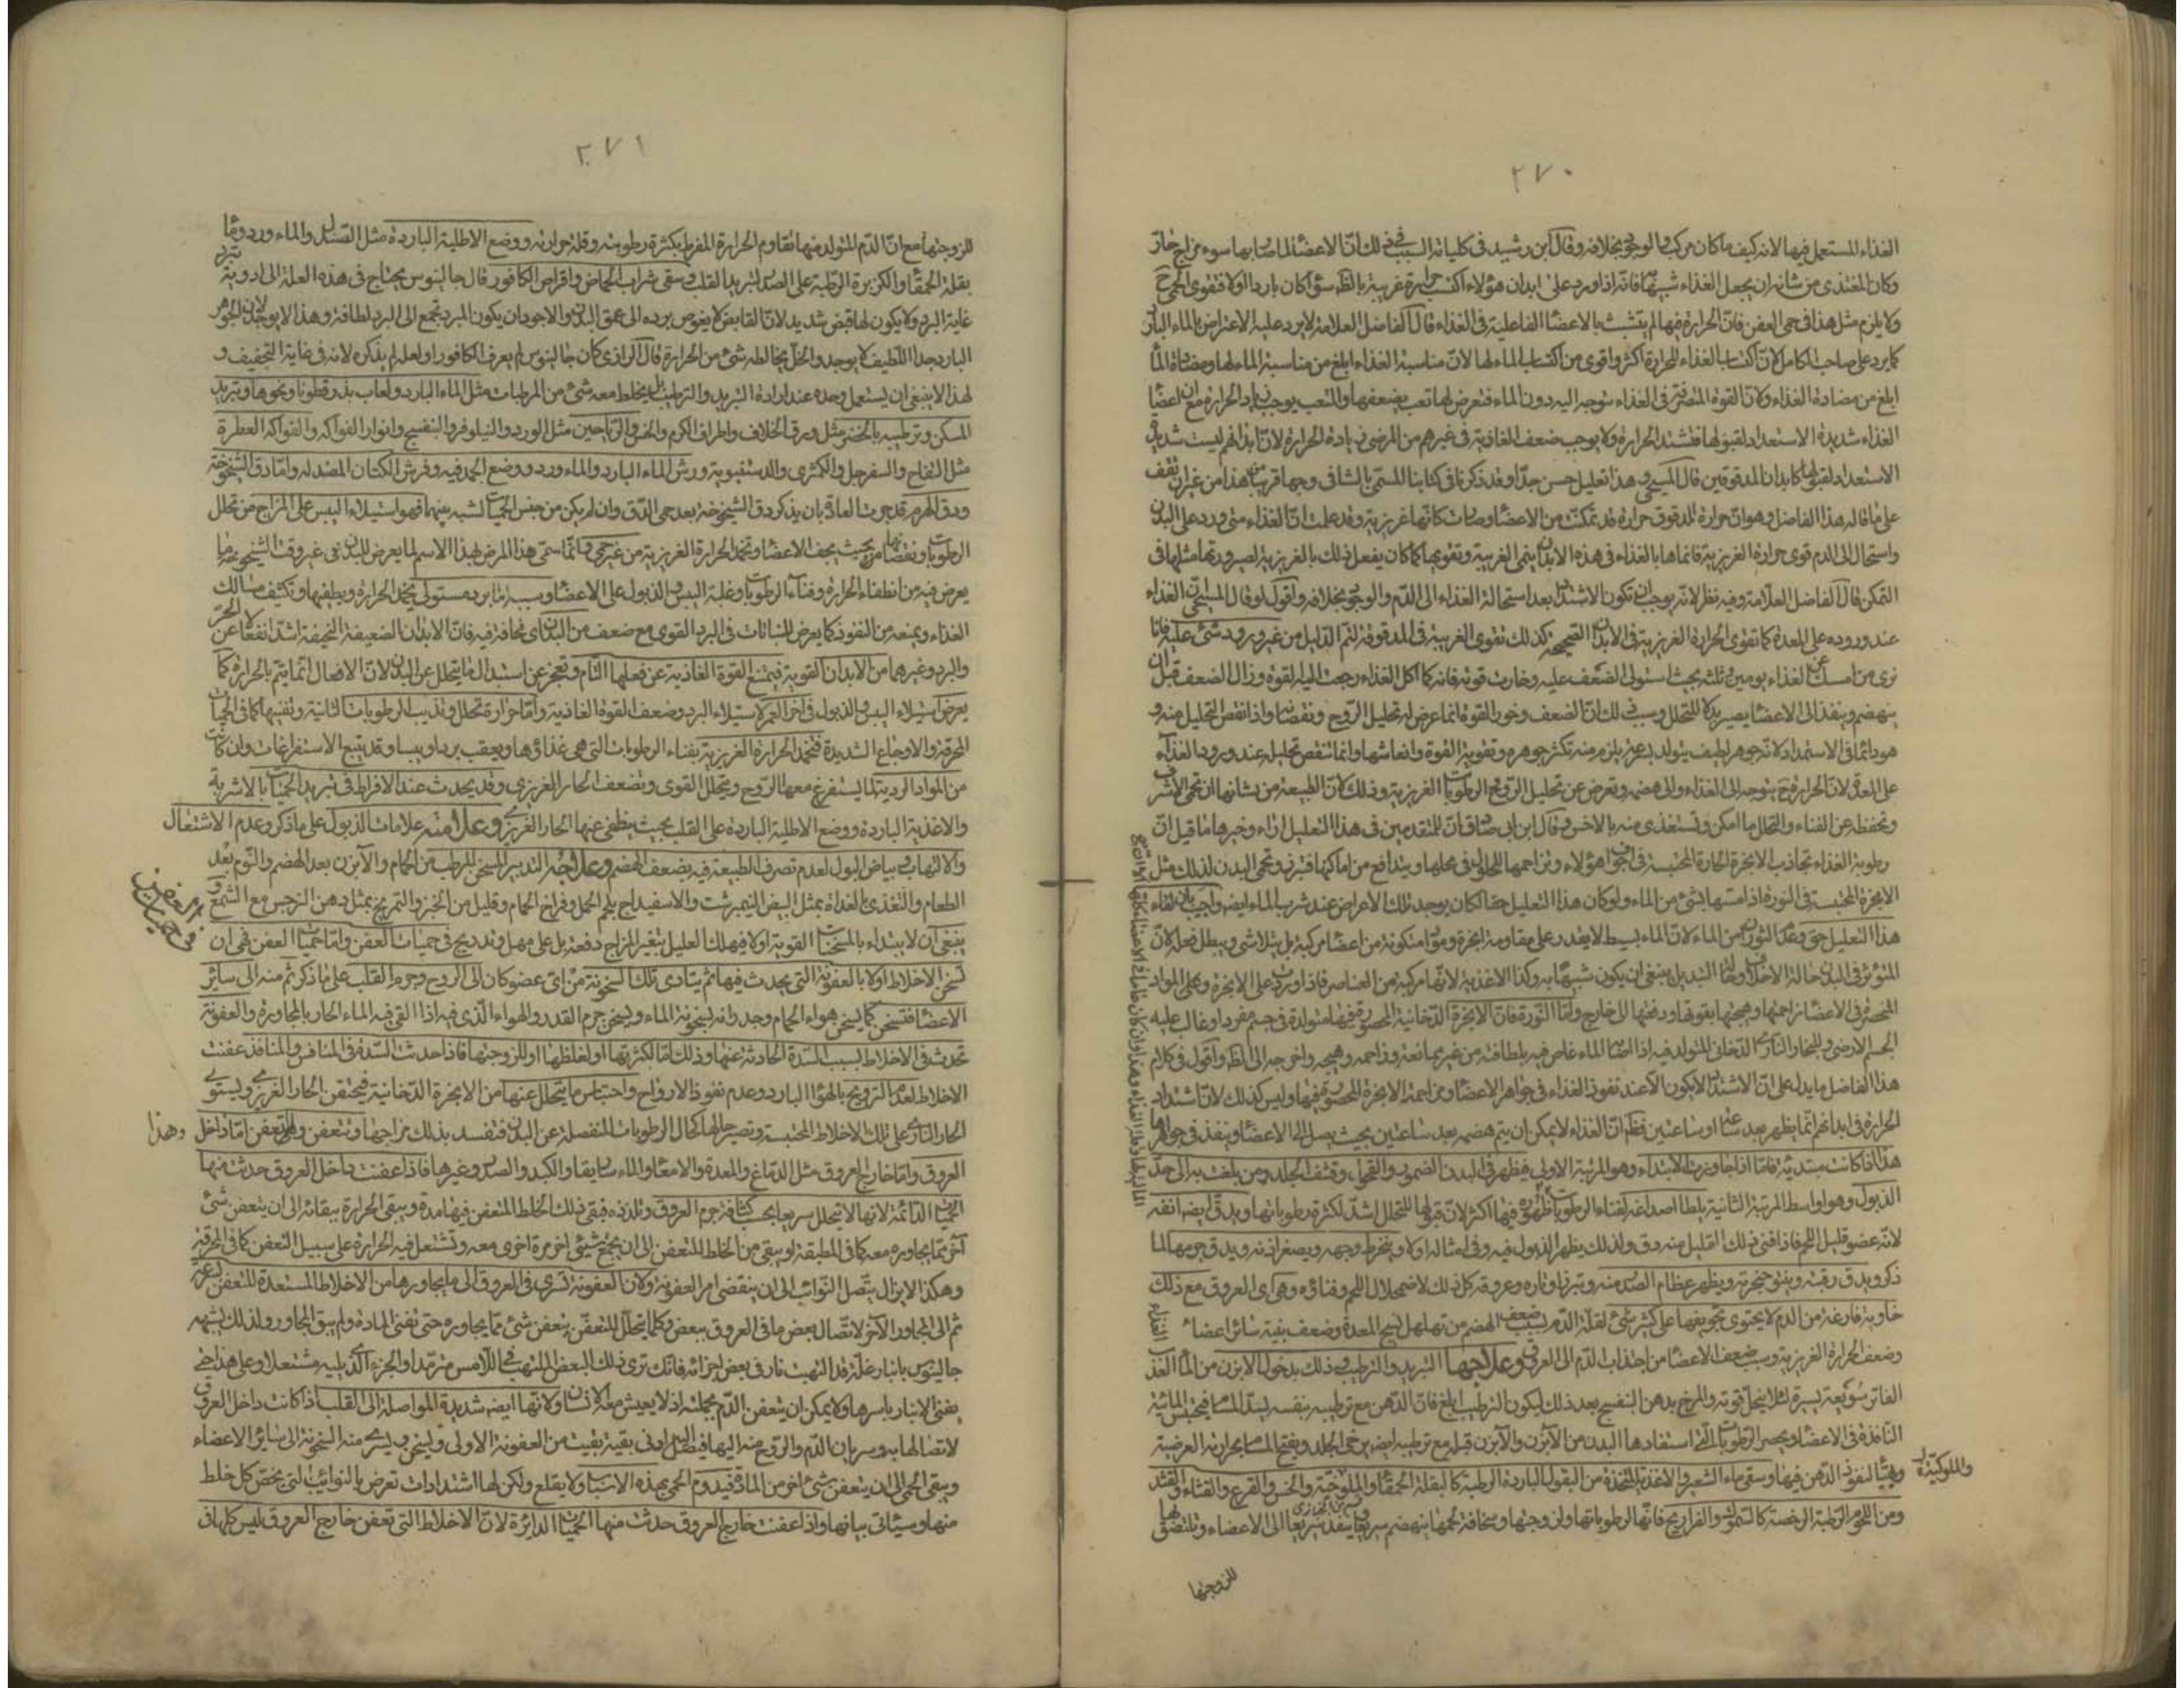 ٢٧٠
الغذاء المستعمل فيها لانه كيف ما كان مركب والوجع بخلافه وقال ابن رشيد فى كلياته السبب فى ذلك ان الاعضاء لما صار بها سوء مزاج حار
وكان المغتذى من شانه ان يجعل الغذاء شبيها فانه اذا ورد على ابدان هؤلاء اكتسب حرارة غريبة بالظ سواء كان باردا اولا فتقوى الحمى ح
ولا يلزم مثل هذا فى حمى العفن فان الحرارة فيها لم يتشبث بالاعضاء الفاعلية فى الغذاء قال الفاضل العلامة لا يرد عليه الاعتراض بالماء البارد
كما يرد على صاحب الكامل لان اكتساب الغذاء للحرارة اكثر واقوى من اكتساب الماء لها لان مناسبة الغذاء ابلغ من مناسبة الماء لها ومضادة الماء
ابلغ من مضادة الغذاء ولان القوة المتصرفة فى الغذاء يتوجه اليه دون الماء فتعرض لها تعب يضعفها والتعب يوجب ازدياد الحرارة مع ان اعضاء
الغذاء شديدة الاستعداد لقبولها فتشتد الحرارة ولا يوجب ضعف الغاذية فى غيرهم من المرضى زيادة الحرارة لان ابدانهم ليست شديدة
الاستعداد لقبولها كابدان المدقوقين قال المسيحى وهذا تعليل حسن جدا وقد ذكرنا فى كتابنا المسمى بالشافى وجها قريبا من هذا من غير ان نقف
على ما قاله هذا الفاضل وهو ان حرارة المدقوق حرارة قد تمكنت من الاعضاء وصارت كانها غريزية وقد علمت ان الغذاء متى ورد على البدن
واستحال الى الدم قوى حرارة الغريزية فانما بالغذاء فى هذه الابدان ينمى الغريبة وتقويها كما كان يفعل ذلك بالغريزية لصيرورتها مثلها فى
التمكن قال الفاضل العلامة وفيه نظر لانه يوجب ان تكون الاشتداد بعد استحالة الغذاء الى الدم والوجود بخلافه واقول لو قال المسيحى ان الغذاء
عند وروده على المعدة كما تقوى الحرارة الغريزية فى الابدان الصحيحة كذلك تقوى الغريبة فى المدقوقة لتم الدليل من غير ورود شئ عليه فانا
نرى من امسك عن الغذاء يومين او ثلثه بحيث استولى الضعف عليه وخارت قوته فانه كما اكل الغذاء رجعت اليه القوة وزال الضعف قبل ان
ينهضم وينفذ الى الاعضاء يصير بدلا للتحلل وسبب ذلك ان الضعف وخور القوة انما عرض له تحليل الروح ونقصانه واذا نقص التحليل منه و
هو دائما فى الاستمداد لانه جوهر لطيف يتولد بسرعة يلزم منه تكثر جوهره وتقوية القوة وانعاشها وانما تنقص تحليله عند ورود الغذاء
على المعدة لان الحرارة ح يتوجه الى الغذاء والى هضمه وتعرض عن تحليل الروح والرطوبات الغريزية وذلك لان الطبيعة من شانها ان تحمى الاشرف
وتحفظه عن الفناء والتحلل ما امكن وتستغذى منه بالاخس وقال ابن ابى صادق ان للمتقدمين فى هذا التعليل اراء وخيرها ما قيل ان
رطوبة الغذاء تجاذب الابخرة الحارة المحتبسة فى اجواف هؤلاء وتزاحمها للحلول فى محلها ويتدافع من اماكنها فتبرز وتحمى البدن لذلك مثل
الابخرة المحتبسة فى النورة اذا مسها شئ من الماء ولو كان هذا التعليل حقا لكان يوجد تلك الاعراض عند شرب الماء ايضا واجيب بان لقاء
هذا التعليل حق وعدم الثوران من الماء لان الماء بسيط لا يقدر على مقاومة ابخرة ومواد متكونة من اعضاء مركبة بل يتلاشى ويبطل فعله لان
المؤثر فى البدن حالة الاخلاف وحالة التبديل ينبغى ان يكون شبيها به وكذا الاغذية لانها مركبة من العناصر فاذا ورد على الابخرة وعلى المواد
المحتصرة فى الاعضاء زاحمتها وهيجتها بقوتها ودفعتها الى خارج واما النورة فان الابخرة الدخانية المحصورة فيها متولدة فى جسم مفرد او غالب عليه
الجسم الارضى والبخار النارى الدخانى المتولد فيه اذا اصابه الماء غاص فيه بلطافته من غير ممانعة وزاحمه وهيجه واخرجه الى الظ واقول فى كلام
هذا الفاضل ما يدل على ان الاشتداد لا يكون الا عند نفوذ الغذاء فى جواهر الاعضاء ومزاحمة الابخرة المحصورة فيها وليس كذلك لان اشتداد
الحرارة فى ابدانهم انما يظهر بعد ساعة او ساعتين فظهر ان الغذاء لا يمكن ان يتم هضمه بعد ساعتين بحيث يصل الى الاعضاء وينفذ فى جواهرها
هذا اذا كانت مبتدئة فاما اذا جاوزت الابتداء وهو المرتبة الاولى فيظهر فى البدن الضمور والقحل وقشف الجلد ومن بلغت به الى حد
الذبول وهو اواسط المرتبة الثانية يلطا اصداغه لفناء الرطوبات وظهوره فيها اكثر لان قبولها للتحلل اشد لكثرة رطوباتها ويدق ايضا انفه
لانه عضو قليل اللحم فاذا فنى ذلك القليل منه دق ولذلك يظهر الذبول فيه وفى امثاله اولا وينخرط وجهه ويصغر اذنه ويدق جرمها لما
ذكر ويدق رقبته وينتو حنجرته ويظهر عظام الصدر منه وتبرز اوتاره وعروقه كل ذلك لاضمحلال اللحم وفنائه وهى اى العروق مع ذلك
خاوية فارغة من الدم لا يحتوى تجويفها على كثير شئ لقلة الدم بسبب ضعف الهضم من تهلهل نسج المعدة وضعف بقية سائر اعضاء الغذاء
وضعف الحرارة الغريزية وبسبب ضعف الاعضاء من اجتذاب الدم الى العروق وعلاجها التبريد والترطيب وذلك بدخول الابزن من الماء العذب
الفاتر سويعة يسيرة لئلا ينحل قوته والمرخ بدهن البنفسج بعد ذلك ليكون الترطيب ابلغ فان الدهن مع ترطيبه بنفسه يسد المسام فيحتبس المائية
النافذة فى الاعضاء ويحصر الرطوبات التى استفادها البدن من الآبزن والآبزن قبله مع ترطيبه ايضا يرخى الجلد ويفتح المسام بحرارته العرضية
ويهيئ لنفوذ الدهن فيها وسقى ماء الشعير والاغذية المتخذة من البقول الباردة الرطبة كالبقلة الحمقاء والملوخية والخس والقرع والقثاء والقثد
والملوكية
ومن اللحوم الرطبة الرخصة كالسموك والفراريج فانها لرطوباتها ولزوجتها وسخافة لحمها ينهضم سريعا وينفذ سريعا الى الاعضاء وتلتصق بها
للزوجتها
٢٧١
للزوجتها مع ان الدم المتولد منها تقاوم الحرارة المفرط بكثرة رطوبته وقلة حرارته ووضع الاطلية الباردة مثل الصندل والماء ورد وماء
بقلة الحمقاء والكزبرة الرطبة على الصدر لتبريد القلب وسقى شراب الحماض واقراص الكافور قال جالينوس يحتاج فى هذه العلة الى ادوية تبرد
غاية البرد ولا يكون لها قبض شديد لان القابض لا يغوص برده الى عمق البدن والاجود ان يكون المبرد تجمع الى البرد لطافة وهذا لا يوجد لان الجوهر
البارد جدا اللطيف لا يوجد والخل يخالطه شئ من الحرارة قال الرازى كان جالينوس لم يعرف الكافور او لعله لم يذكره لانه فى غاية التجفيف و
لهذا لا ينبغى ان يستعمل وحده عند ارادة التبريد والترطيب بل يخلط معه شئ من المرطبات مثل الماء البارد ولعاب بذر قطونا ونحوها وتبريد
المسكن وترطيبه بالخضر مثل ورق الخلاف واطراف الكرم والخس والرياحين مثل الورد والنيلوفر والبنفسج وانوار الفواكه والفواكه العطرة
مثل التفاح والسفرجل والكمثرى والدستنبوية ورش الماء البارد والماء ورد ووضع الجمد فيه وفرش الكتان المصندله واما دق الشيخوخة
ودق الهرم قد جرت العادة بان يذكر دق الشيخوخة بعد حمى الدق وان لم يكن من جنس الحميات لشبه بينهما فهو استيلاء اليبس على المزاج من تحلل
الرطوبات ونقصانها من بحيث يجف الاعضاء وتخمد الحرارة الغريزية من غير حمى وانما سمى هذا المرض بهذا الاسم لما يعرض للبدن فى غير وقت الشيخوخة ما
يعرض فيه من انطفاء الحرارة وفناء الرطوبات وغلبة اليبس والذبول على الاعضاء وسببه اما برد مستولى يخمد الحرارة ويطفيها وتكثف مسالك
الغذاء ويمنعه من النفوذ كما يعرض للنباتات فى البرد القوى مع ضعف من البدن اى نحافة فيه فان الابدان الضعيفة النحيفة اشد انفعالا عن الحر
والبرد وغيرهما من الابدان القوية فيمتنع القوة الغاذية عن فعلها التام وتعجز عن استبدال ما يتحلل عن البدن لان الافعال انما يتم بالحرارة كما
يعرض استيلاء اليبس والذبول فى آخر العمر لاستيلاء البرد وضعف القوة الغاذية واما حرارة تحلل وتذيب الرطوبات الثانية وتفنيها كما فى الحميات
المحرقة والاوجاع الشديدة فتخمد الحرارة الغريزية بفناء الرطوبات التى هى غذاؤها ويعقب بردا ويبسا وقد يتبع الاستفراغات وان كانت
من المواد الردية لما يستفرغ معها الروح ويتحلل القوى وتضعف الحار الغريزى وقد يحدث عند الافراط فى تبريد الحميات بالاشربة
والاغذية الباردة ووضع الاطلية الباردة على القلب بحيث ينطفى عنها الحار الغريزى وعلامته علامات الذبول على ما ذكر وعدم الاشتعال
والالتهاب وبياض البول لعدم تصرف الطبيعة فيه بضعف الهضم وعلاجه التدبير المسخن المرطب من الحمام والآبزن بعد الهضم والنوم بعد
الطعام والتغذى بالغداة بمثل البيض النيمبرشت والاسفيداج بلحم الحمل وفراخ الحمام وقليل من الخبز والتمريخ بمثل دهن النرجس مع الشمع و
ينبغى ان لا يبتداء بالمسخنات القوية اولا فيهلك العليل بتغير المزاج دفعة بل على مهل وتدريج فى حميات العفن واما حميات العفن فهى ان
تسخن الاخلاط اولا بالعفونة التى يحدث فيها ثم يتادى تلك السخونة من اى عضو كان الى الروح وجرم القلب على ما ذكر ثم منه الى ساير
الاعضاء فتسخن كما يسخن هواء الحمام وجدرانه بسخونة الماء ويسخن جرم القدر والهواء الذى فيه اذا القى فيه الماء الحار بالمجاورة والعفونة
تحدث فى الاخلاط بسبب السدة الحادثة عنها وذلك اما لكثرتها او لغلظها او للزوجتها فاذا حدثت السدة فى المنافس والمنافذ عفنت
الاخلاط لعدم الترويح بالهواء البارد وعدم نفوذ الارواح واحتباس ما يتحلل عنها من الابخرة الدخانية فيحتقن الحار الغريزى ويستولى
الحار النارى على تلك الاخلاط المحتبسة وتصير حالها كحال الرطوبات المنفصلة عن البدن فتفسد بذلك مزاجها وتتعفن وهذا التعفن اما داخل
العروق واما خارج العروق مثل الدماغ والمعدة والامعاء والماساريقا والكبد والصدر وغيرها فاذا عفنت داخل العروق حدثت منها
الحميات الدائمة لانها لا يتحلل سريعا بحسب كثافة جرم العروق وتلززه فيبقى ذلك الخلط المتعفن فيها مدة ويبقى الحرارة ببقائه الى ان يتعفن شئ
آخر مما يجاوره معه كما فى المطبقة او يبقى من الخلط المتعفن الى ان يجتمع شئ آخر مرة اخرى معه وتشتعل فيه الحرارة على سبيل التعفن كما فى المحرقة
وهكذا لا يزال يتصل النوائب الى ان ينقضى امر العفونة ولان العفونة تسرى فى العروق الى ما يجاورها من الاخلاط المستعدة للتعفن بسرعة
ثم الى المجاور الآخر لاتصال بعض ما فى العروق ببعض وكلما يتحلل المتعفن يتعفن شئ مما يجاوره حتى تفنى المادة ولم يبق المجاور ولذلك يشبهه
جالينوس بانبار غلة قد التهبت نار فى بعض اجزائه فانك ترى ذلك البعض الملتهب فى اللامس مترمدا والجزء الذى يليه مشتعلا وعلى هذا حتى
يفنى الانبار باسرها ولا يمكن ان يتعفن الدم بجملته اذ لا يعيش معه الانسان ولانها ايضا شديدة المواصلة الى القلب اذا كانت داخل العروق
لاتصالها به وسريان الدم والروح منه اليها فيصل اليه ادنى بقية بقيت من العفونة الاولى ويسخن ويسرى منه السخونة الى سائر الاعضاء
ويبقى الحمى الى ان يتعفن شئ آخر من المادة فيدوم الحمى بهذه الاسباب ولا يقلع ولكن لها اشتدادات تعرض بالنوائب التى يختص كل خلط
منها وسيأتى بيانها واذا عفنت خارج العروق حدثت منها الحميات الدائرة لان الاخلاط التى تعفن خارج العروق ليس كلها فى
فى حميات العفن
وهذا